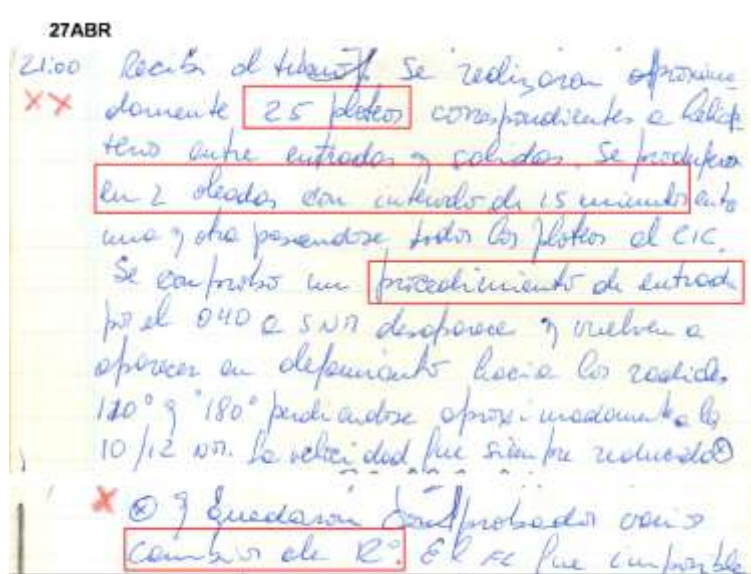 27ABR
21:00 Recibí el teléf. Se realizaron aproxima
damente 25 ploteos correspondientes a helicóp
teros entre entradas y salidas. Se produjeron
en 2 oleadas con intervalo de 15 minutos entre
una y otra pasandose todos los ploteos al CIC.
Se comprobó un procedimiento de entrada
por el 040 a 5 NM desaparece y vuelven a
aparecer en hacia los radiales
120° y 180° perdiendose aproximadamente a los
10/12 NM. La velocidad fue siempre reducida
y Quedaron comprobados varios
cambios de Rº. El FC fue imposible